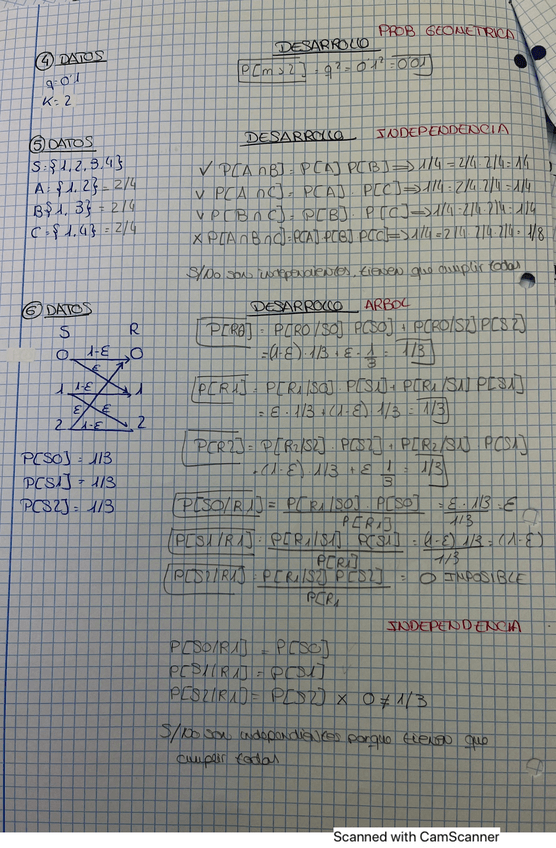 PROB GEOMETRICA
④ DATOS
DESARROLLO
q=0'1
K=2
P[m>2] = q² = 0'1² = 0'01
⑤ DATOS
DESARROLLO INDEPENDENCIA
S:{1,2,3,4}
A:{1,2} = 2/4
B{1,3} = 2/4
C:{1,4} = 2/4
✓ P[A∩B] = P[A] P[B] => 1/4 = 2/4 · 2/4 = 1/4
✓ P[A∩C] = P[A] · P[C] => 1/4 = 2/4 · 2/4 = 1/4
✓ P[B∩C] = P[B] · P[C] => 1/4 = 2/4 · 2/4 = 1/4
X P[A∩B∩C] = P[A] P[B] P[C] => 1/4 = 2/4 · 2/4 · 2/4 = 1/8
S/ No son independientes, tienen que cumplir todas
⑥ DATOS
DESARROLLO ARBOL
S R
0 1-ε 0
ε
1 1-ε 1
ε ε
2 1-ε 2
P[S0] = 1/3
P[S1] = 1/3
P[S2] = 1/3
P[R0] = P[R0/S0] P[S0] + P[R0/S2] P[S2]
=(1-ε) · 1/3 + ε · 1/3 = 1/3
P[R1] = P[R1/S0] · P[S1] + P[R1/S1] P[S1]
= ε · 1/3 + (1-ε) 1/3 = 1/3
P[R2] = P[R2/S2] · P[S2] + P[R2/S1] P[S1]
= (1-ε) 1/3 + ε 1/3 = 1/3
P[S0/R1] = P[R1/S0] · P[S0] / P[R1] = ε · 1/3 / 1/3 = ε
P[S1/R1] = P[R1/S1] P[S1] / P[R1] = (1-ε) 1/3 / 1/3 = (1-ε)
P[S2/R1] = P[R1/S2] P[S2] / P[R1 = 0 IMPOSIBLE
INDEPENDENCIA
P[S0/R1] = P[S0]
P[S1/R1] = P[S1]
P[S2/R1] = P[S2] X 0 ≠ 1/3
S/ No son independientes porque tienen que
cumplir todas
Scanned with CamScanner